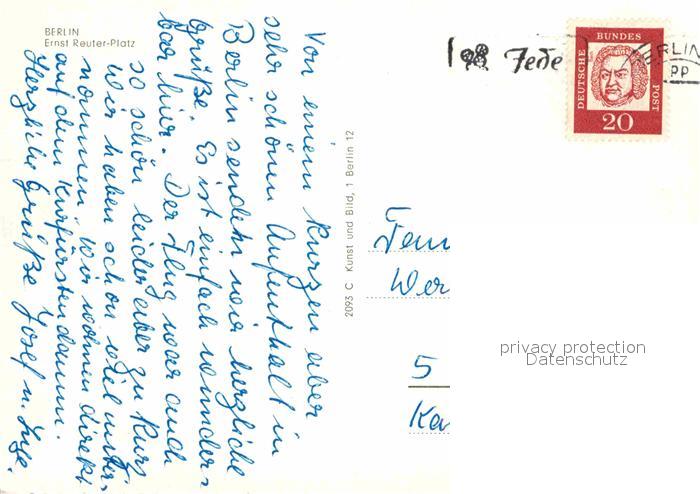 BERLIN
Ernst Reuter-Platz
Von einem kurzen aber
sehr schönen Aufenthalt in
Berlin senden wir herzliche
Grüße. Es ist einfach wunder-
bar hier. Der Flug war auch
so schön leider aber zu kurz
wir haben schon viel unter-
nommen wir wohnen direkt
auf dem Kurfürstendamm.
Herzliche Grüße Josef u. Inge.
2093 C Kunst und Bild, 1 Berlin 12
Jede
DEUTSCHE
BUNDES
POST
20
BERLIN
PP
Fam
Wer
5
Ka
privacy protection
Datenschutz